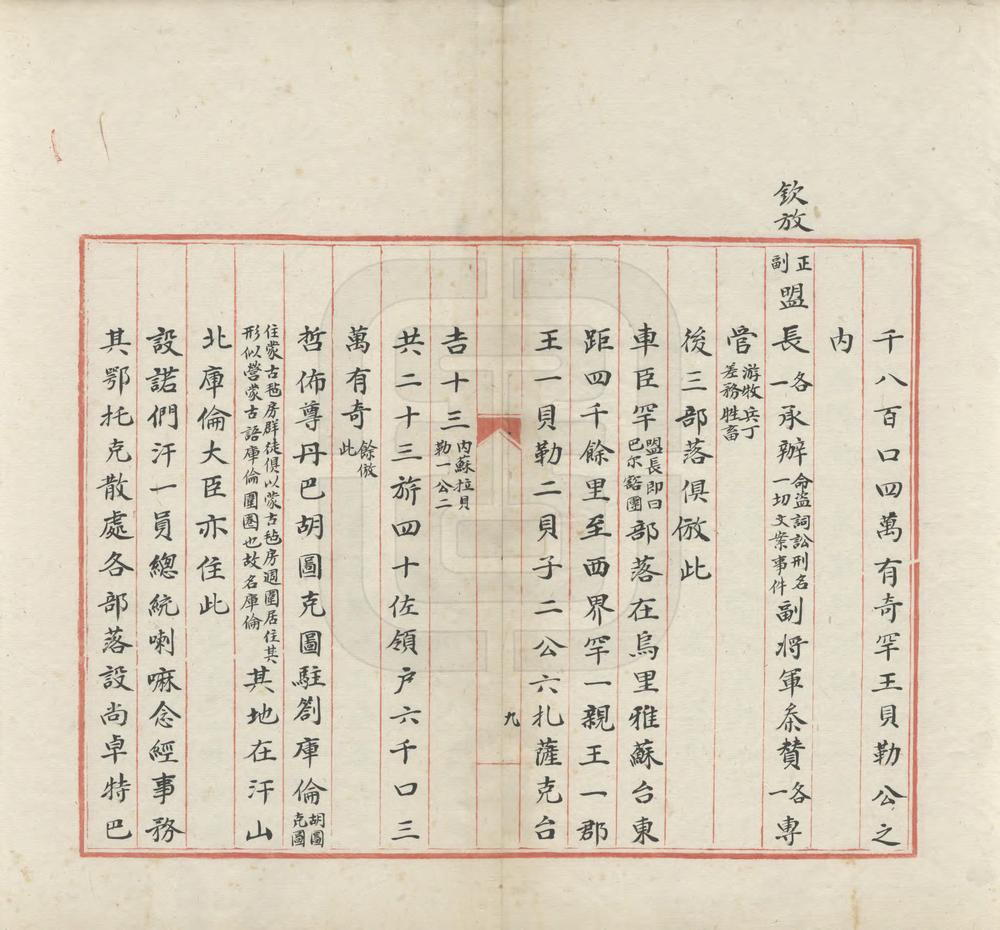 千八百口四萬有奇罕王貝勒公之
内
欽放正副盟長各一承辦命盗詞訟刑名一切文案事件副将軍叅賛各一專
管游牧兵丁差務牲畜
後三部落俱倣此
車臣罕盟長即曰巴尔豁團部落在烏里雅蘇台東
距四千餘里至西界罕一親王一郡
王一貝勒二貝子二公六扎薩克台
九
吉十三内蘇拉貝勒一公二
共二十三旂四十佐領户六千口三
萬有奇餘倣此
哲佈尊丹巴胡圖克圖駐劄庫倫胡圖克圖
住蒙古毡房群徒俱以蒙古毡房週圍居住其形似營蒙古語庫倫圍圈也故名庫倫其地在汗山
北庫倫大臣亦住此
設諾們汗一員總統喇嘛念經事務
其鄂托克散處各部落設尚卓特巴